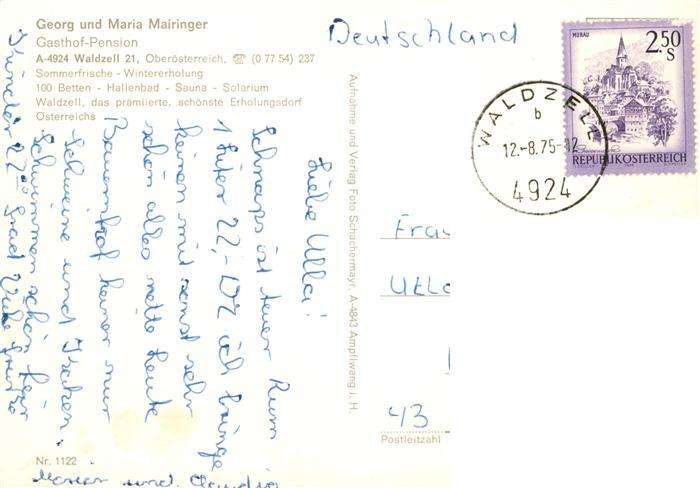 Georg und Maria Mairinger
Gasthof-Pension
A-4924 Waldzell 21, Oberösterreich, ☎ (0 77 54) 237
Sommerfrische - Wintererholung
100 Betten - Hallenbad - Sauna - Solarium
Waldzell, das prämiierte, schönste Erholungsdorf
Österreichs
Deutschland
MURAU
2.50
S
REPUBLIK ÖSTERREICH
WALDZELL
b
12.-8.75-12
4924
Liebe Ulla!
Schnaps ist teuer Rum
1 Liter 22,- DM ich bringe
keinen mit sonst sehr
schön alles nette Leute
Bauernhof keiner nur
Schweine und Katzen.
Schwimmen schön für
Kinder 22° Grad Viele Grüße
Marion und Claudia
Aufnahme und Verlag Foto Schuchermayr, A-4843 Ampflwang i. H.
Frau
43
Postleitzahl
Nr. 1122